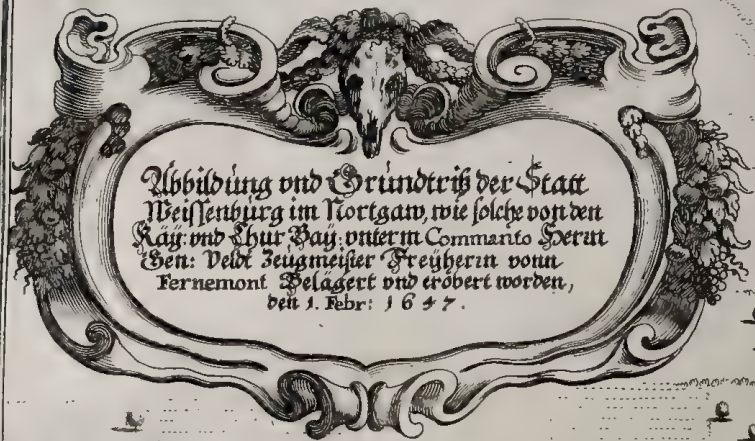 Abbildung vnd Gründtriß der Statt
Weissenburg im Nortgaw, wie solche von den
Käÿ: vnd Chur Baÿ: vnterm Commanto Herrn
Gen: Veldt Zeugmeister Freÿherrn vonn
Fernemont Belägert vnd eröbert worden,
den 1. Febr: 1647.